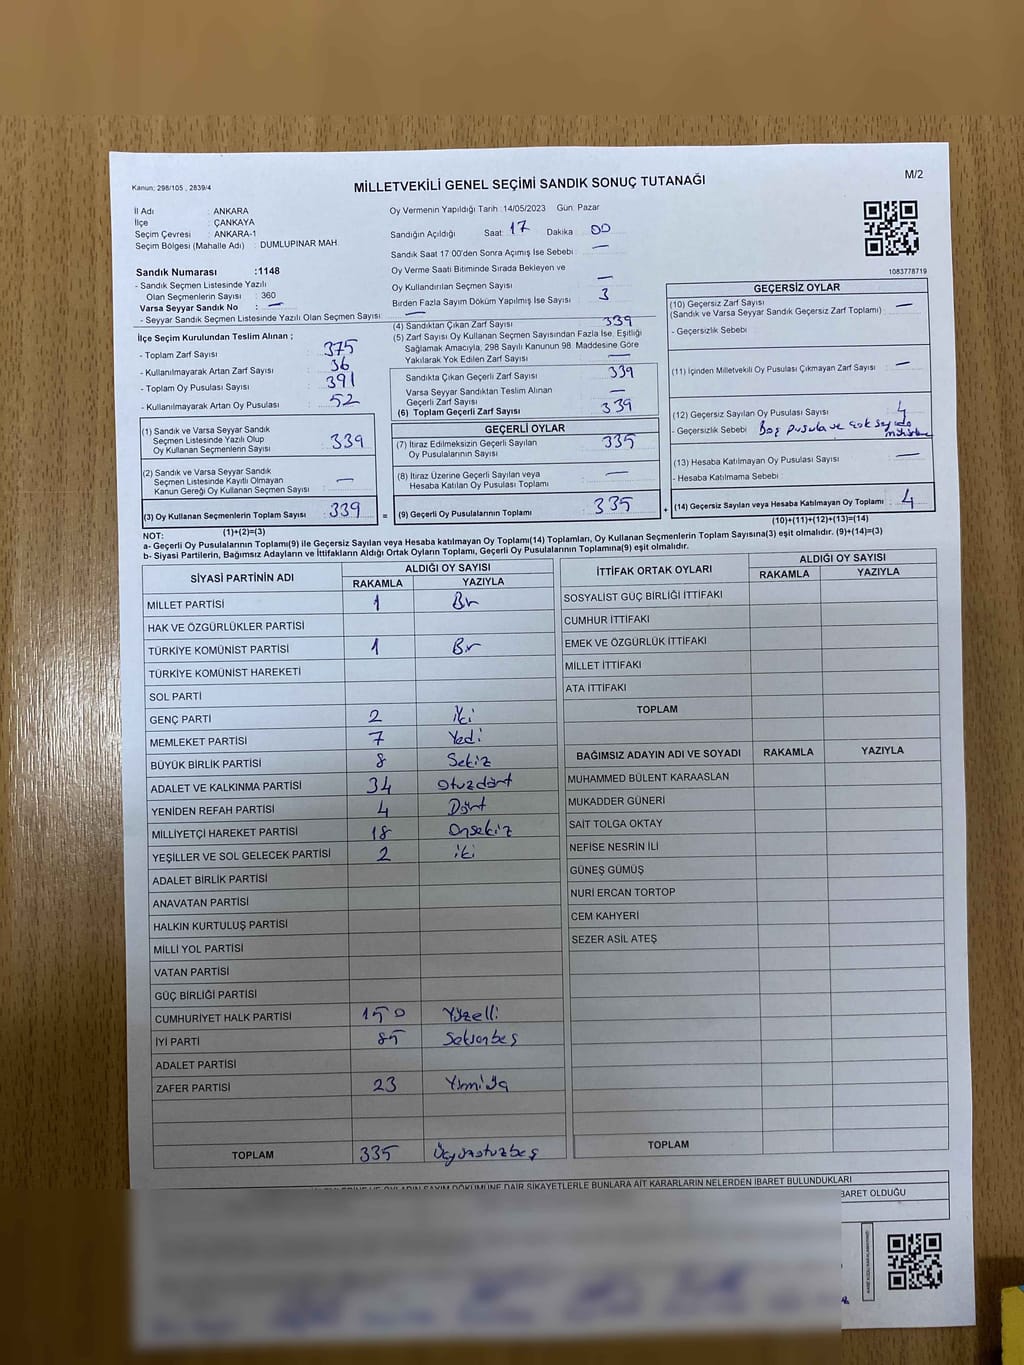 Kanun; 298/105 , 2839/4
MİLLETVEKİLİ GENEL SEÇİMİ SANDIK SONUÇ TUTANAĞI
M/2
İl Adı : ANKARA
İlçe : ÇANKAYA
Seçim Çevresi : ANKARA-1
Seçim Bölgesi (Mahalle Adı) : DUMLUPINAR MAH.
Sandık Numarası :1148
- Sandık Seçmen Listesinde Yazılı
Olan Seçmenlerin Sayısı : 360
Varsa Seyyar Sandık No : —
- Seyyar Sandık Seçmen Listesinde Yazılı Olan Seçmen Sayısı : —
İlçe Seçim Kurulundan Teslim Alınan ;
- Toplam Zarf Sayısı : 375
- Kullanılmayarak Artan Zarf Sayısı : 36
- Toplam Oy Pusulası Sayısı : 391
- Kullanılmayarak Artan Oy Pusulası : 52
(1) Sandık ve Varsa Seyyar Sandık
Seçmen Listesinde Yazılı Olup
Oy Kullanan Seçmenlerin Sayısı : 339
(2) Sandık ve Varsa Seyyar Sandık
Seçmen Listesinde Kayıtlı Olmayan
Kanun Gereği Oy Kullanan Seçmen Sayısı : —
(3) Oy Kullanan Seçmenlerin Toplam Sayısı : 339
(1)+(2)=(3)
Oy Vermenin Yapıldığı Tarih : 14/05/2023 Gün: Pazar
Sandığın Açıldığı Saat 17 Dakika 00
Sandık Saat 17:00'den Sonra Açımış İse Sebebi : —
Oy Verme Saati Bitiminde Sırada Bekleyen ve
Oy Kullandırılan Seçmen Sayısı : —
Birden Fazla Sayım Döküm Yapılmış İse Sayısı : 3
(4) Sandıktan Çıkan Zarf Sayısı : 339
(5) Zarf Sayısı Oy Kullanan Seçmen Sayısından Fazla İse, Eşitliği
Sağlamak Amacıyla, 298 Sayılı Kanunun 98. Maddesine Göre
Yakılarak Yok Edilen Zarf Sayısı : —
Sandıkta Çıkan Geçerli Zarf Sayısı : 339
Varsa Seyyar Sandıktan Teslim Alınan
Geçerli Zarf Sayısı : —
(6) Toplam Geçerli Zarf Sayısı : 339
GEÇERLİ OYLAR
(7) İtiraz Edilmeksizin Geçerli Sayılan
Oy Pusulalarının Sayısı : 335
(8) İtiraz Üzerine Geçerli Sayılan veya
Hesaba Katılan Oy Pusulası Toplamı : —
= (9) Geçerli Oy Pusulalarının Toplamı : 335 +
1083778719
GEÇERSİZ OYLAR
(10) Geçersiz Zarf Sayısı : —
(Sandık ve Varsa Seyyar Sandık Geçersiz Zarf Toplamı)
- Geçersizlik Sebebi :
(11) İçinden Milletvekili Oy Pusulası Çıkmayan Zarf Sayısı : —
(12) Geçersiz Sayılan Oy Pusulası Sayısı : 4
- Geçersizlik Sebebi : Boş pusula ve çok sayıda
(13) Hesaba Katılmayan Oy Pusulası Sayısı : —
- Hesaba Katılmama Sebebi :
(14) Geçersiz Sayılan veya Hesaba Katılmayan Oy Toplamı : 4
(10)+(11)+(12)+(13)=(14)
NOT:
a- Geçerli Oy Pusulalarının Toplamı(9) ile Geçersiz Sayılan veya Hesaba katılmayan Oy Toplamı(14) Toplamları, Oy Kullanan Seçmenlerin Toplam Sayısına(3) eşit olmalıdır. (9)+(14)=(3)
b- Siyasi Partilerin, Bağımsız Adayların ve İttifakların Aldığı Ortak Oyların Toplamı, Geçerli Oy Pusulalarının Toplamına(9) eşit olmalıdır.
SİYASİ PARTİNİN ADI ALDIĞI OY SAYISI
RAKAMLA YAZIYLA
MİLLET PARTİSİ 1 Bir
HAK VE ÖZGÜRLÜKLER PARTİSİ
TÜRKİYE KOMÜNİST PARTİSİ 1 Bir
TÜRKİYE KOMÜNİST HAREKETİ
SOL PARTİ
GENÇ PARTİ 2 İki
MEMLEKET PARTİSİ 7 Yedi
BÜYÜK BİRLİK PARTİSİ 8 Sekiz
ADALET VE KALKINMA PARTİSİ 34 otuzdört
YENİDEN REFAH PARTİSİ 4 Dört
MİLLİYETÇİ HAREKET PARTİSİ 18 Onsekiz
YEŞİLLER VE SOL GELECEK PARTİSİ 2 iki
ADALET BİRLİK PARTİSİ
ANAVATAN PARTİSİ
HALKIN KURTULUŞ PARTİSİ
MİLLİ YOL PARTİSİ
VATAN PARTİSİ
GÜÇ BİRLİĞİ PARTİSİ
CUMHURİYET HALK PARTİSİ 150 Yüzelli
İYİ PARTİ 85 Seksenbeş
ADALET PARTİSİ
ZAFER PARTİSİ 23 Yirmiüç
TOPLAM 335 Üçyüzotuzbeş
İTTİFAK ORTAK OYLARI ALDIĞI OY SAYISI
RAKAMLA YAZIYLA
SOSYALİST GÜÇ BİRLİĞİ İTTİFAKI
CUMHUR İTTİFAKI
EMEK VE ÖZGÜRLÜK İTTİFAKI
MİLLET İTTİFAKI
ATA İTTİFAKI
TOPLAM
BAĞIMSIZ ADAYIN ADI VE SOYADI RAKAMLA YAZIYLA
MUHAMMED BÜLENT KARAASLAN
MUKADDER GÜNERİ
SAİT TOLGA OKTAY
NEFİSE NESRİN İLİ
GÜNEŞ GÜMÜŞ
NURİ ERCAN TORTOP
CEM KAHYERİ
SEZER ASİL ATEŞ
TOPLAM
DÖKÜMÜNE DAİR ŞİKAYETLERLE BUNLARA AİT KARARLARIN NELERDEN İBARET BULUNDUKLARI
BARET OLDUĞU